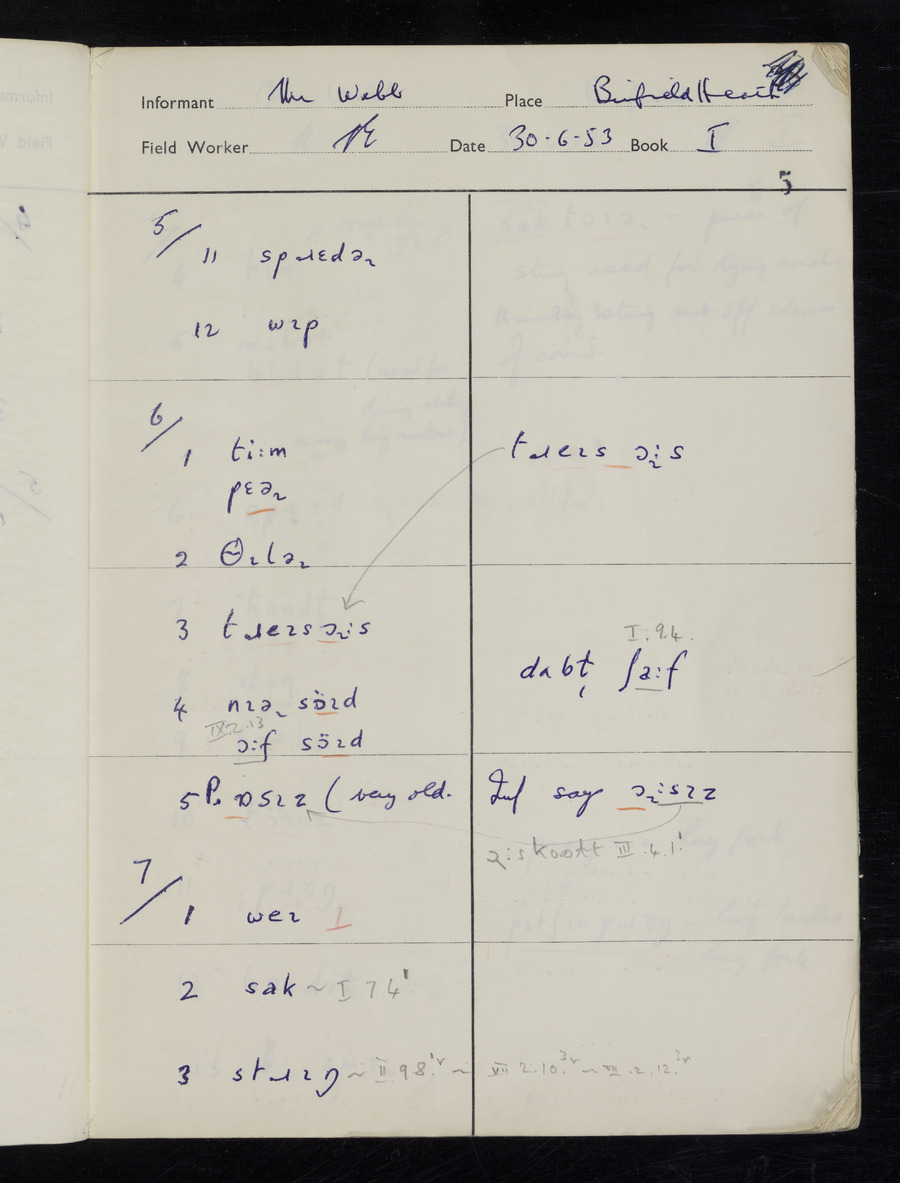 Informant Mr Webb Place Binfield Heath
Field Worker Date 30-6-53 Book I
5
5/
11 spɹɛdəɹ
12 wɪp
6/
1 ti:m
pɛəɹ tɹeɪs ɔɹ:s
2 θɪləɹ
3 tɹeɪs ɔɹ:s
I.9.4.
4 nɪəɹ sɔ̈ɪd dʌbt̩ ʃa:f
IX.2.13
ɔ:f sɔ̈ɪd
5 P. ɒsɪz (very old. Inf say ɔɹ:sɪz
III.4.1
7/
1 weɪ I
2 sak ~ I 7 4
3 stɹɪŋ ~ II.9.8. ~ VII 2.10. ~ VII.2.12.